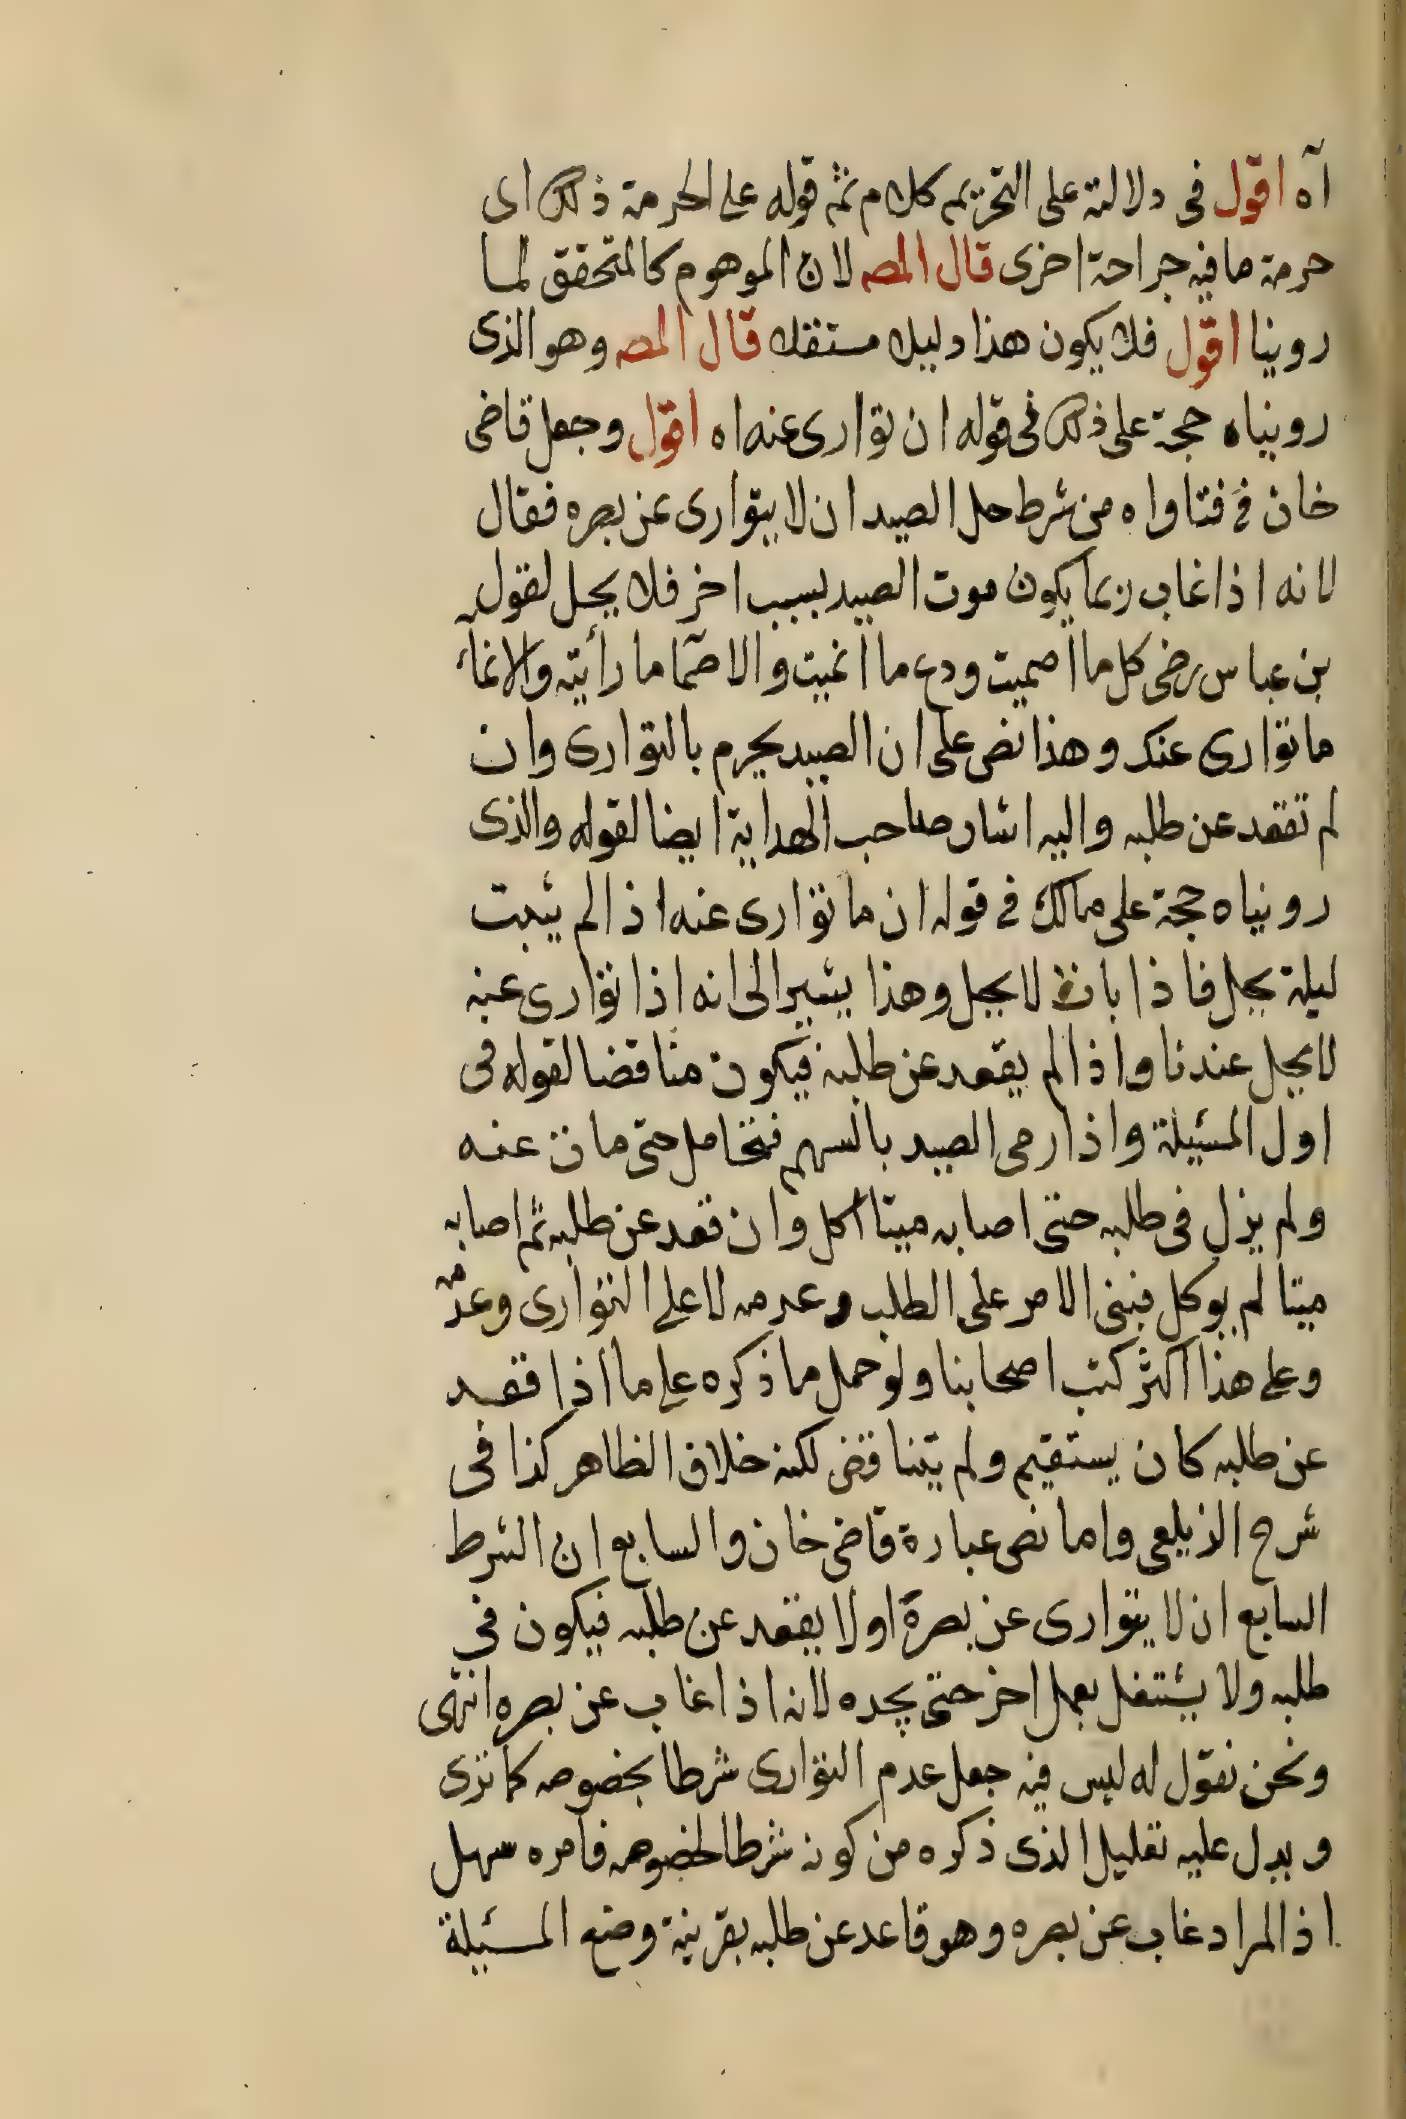 آه اقول فى دلالته على التحريم كلام ثم قوله على الحرمة ذلك اى
حرمة ما فيه جراحة اخرى قال المصه لان الموهوم كالمتحقق لما
روينا اقول فلا يكون هذا دليلا مستقلا قال المصه وهو الذى
رويناه حجة على ذلك فى قوله ان توارى عنه اه اقول وجعل قاضى
خان فى فتاواه من شرط حل الصيد ان لا يتوارى عن بصره فقال
لانه اذا غاب ربما يكون موت الصيد بسبب اخر فلا يحل لقول
بن عباس رضى كل ما اصميت ودع ما انميت والاصما ما رأيته والانماء
ما توارى عنك وهذا نص على ان الصيد يحرم بالتوارى وان
لم تقعد عن طلبه واليه اشار صاحب الهداية ايضا لقوله والذى
رويناه حجة على مالك فى قوله ان ما توارى عنه اذا لم يبت
ليلة يحل فاذا بات لا يحل وهذا يشير الى انه اذا توارى عنه
لا يحل عندنا واذا لم يقعد عن طلبه فيكون مناقضا لقوله فى
اول المسئيلة واذا رمى الصيد بالسهم فتحامل حتى مات عنه
ولم يزل فى طلبه حتى اصابه ميتا اكل وان قعد عن طلبه ثم اصابه
ميتا لم يوكل فبنى الامر على الطلب وعدمه لا على التوارى وعدمه
وعلى هذا اكثر كتب اصحابنا ولو حمل ما ذكره على ما اذا قعد
عن طلبه كان يستقيم ولم يتناقض لكنه خلاف الظاهر كذا فى
شرح الزيلعى واما نص عبارة قاضى خان والسابع ان الشرط
السابع ان لا يتوارى عن بصره او لا يقعد عن طلبه فيكون فى
طلبه ولا يشتغل بعمل اخر حتى يجده لانه اذا غاب عن بصره انتهى
ونحن نقول له ليس فيه جعل عدم التوارى شرطا بخصوصه كما ترى
ويدل عليه تعليل الذى ذكره من كونه شرطا لخصوصه فامره سهل
اذ المراد غاب عن بصره وهو قاعد عن طلبه بقرينة وضع المسئيلة